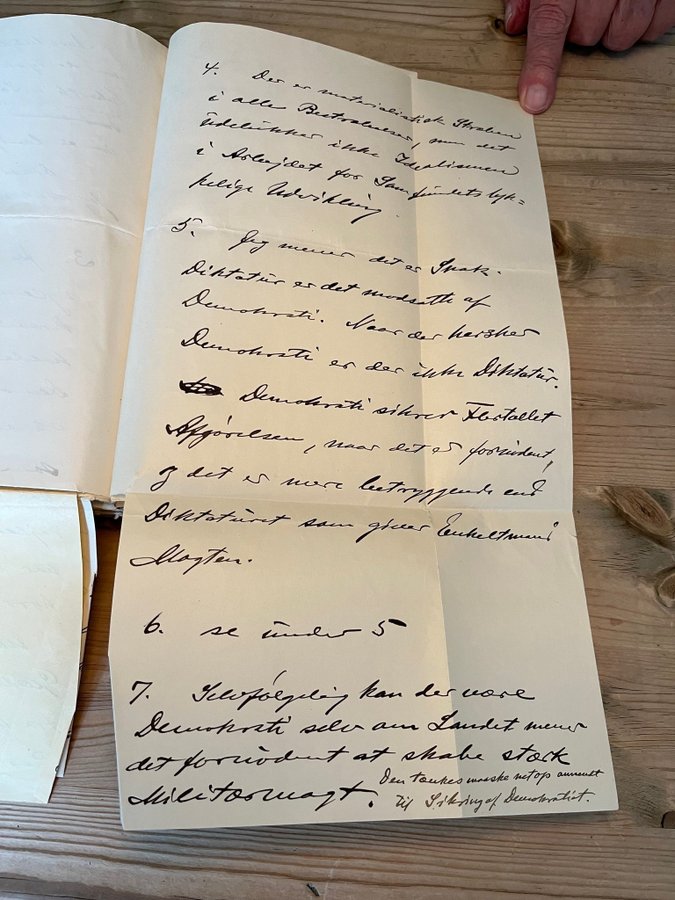 4. Der er materialistisk Stræben
i alle Bestræbelser, men det
udelukker ikke Idealismen
i Arbejdet for Samfundets lyk=
kelige Udvikling.
5. Jeg mener det er Snak.
Diktatur er det modsatte af
Demokrati. Naar der hersker
Demokrati er der ikke Diktatur.
Demokrati sikrer Flertallet
Afgørelsen, naar det er fornødent,
og det er mere betryggende end
Diktaturet som giver Enkeltmand
Magten.
6. se under 5
7. Selvfølgelig kan der være
Demokrati selv om Landet mener
det fornødent at skabe stærk
Militærmagt.
Den tænkes maaske netop anvendt
til Sikring af Demokratiet.